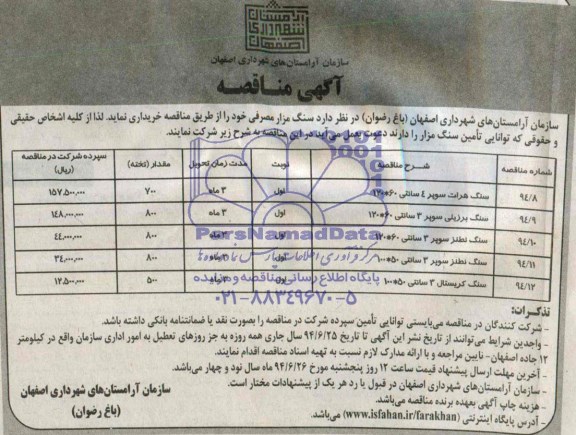 آرامستان
شهرداری
اصفهان
سازمان آرامستان‌های شهرداری اصفهان
آگهی مناقصه
سازمان آرامستان‌های شهرداری اصفهان (باغ رضوان) در نظر دارد سنگ مزار مصرفی خود را از طریق مناقصه خریداری نماید. لذا از کلیه اشخاص حقیقی
و حقوقی که توانایی تأمین سنگ مزار را دارند دعوت بعمل می‌آید در این مناقصه به شرح زیر شرکت نمایند.
شماره مناقصه شرح مناقصه نوبت مدت زمان تحویل مقدار (تخته) سپرده شرکت در مناقصه (ریال)
۹۴/۸ سنگ هرات سوپر ۴ سانتی ۶۰*۱۲۰ اول ۳ ماه ۷۰۰ ۱۵۷.۵۰۰.۰۰۰
۹۴/۹ سنگ برزیلی سوپر ۳ سانتی ۶۰*۱۲۰ اول ۳ ماه ۸۰۰ ۱۴۸.۰۰۰.۰۰۰
۹۴/۱۰ سنگ نطنز سوپر ۳ سانتی ۶۰*۱۲۰ اول ماه ۸۰۰ ۴۴.۰۰۰.۰۰۰
۹۴/۱۱ سنگ نطنز سوپر ۳ سانتی ۵۰*۱۰۰ اول ماه ۸۰۰ ۳۴.۰۰۰.۰۰۰
۹۴/۱۲ سنگ کریستال ۳ سانتی ۵۰*۱۰۰ اول ماه ۵۰۰ ۱۲.۵۰۰.۰۰۰
ParsNamadData
مرکز فرآوری اطلاعات پارس نماد داده‌ها
پایگاه اطلاع رسانی مناقصه و مزایده
۰۲۱-۸۸۳۴۹۶۷۰-۵
تذکرات:
- شرکت کنندگان در مناقصه می‌بایستی توانایی تأمین سپرده شرکت در مناقصه را بصورت نقد یا ضمانتنامه بانکی داشته باشد.
- واجدین شرایط می‌توانند از تاریخ نشر این آگهی تا تاریخ ۹۴/۶/۲۵ سال جاری همه روزه به جز روزهای تعطیل به امور اداری سازمان واقع در کیلومتر
۱۲ جاده اصفهان - نایین مراجعه و با ارائه مدارک لازم نسبت به تهیه اسناد مناقصه اقدام نمایند.
- آخرین مهلت ارسال پیشنهاد قیمت ساعت ۱۲ روز پنجشنبه مورخ ۹۴/۶/۲۶ ماه سال نود و چهار می‌باشد.
- سازمان آرامستان‌های شهرداری اصفهان در قبول یا رد هر یک از پیشنهادات مختار است.
- هزینه چاپ آگهی بعهده برنده مناقصه می‌باشد.
- آدرس پایگاه اینترنتی (www.isfahan.ir/farakhan) می‌باشد.
سازمان آرامستان‌های شهرداری اصفهان
(باغ رضوان)